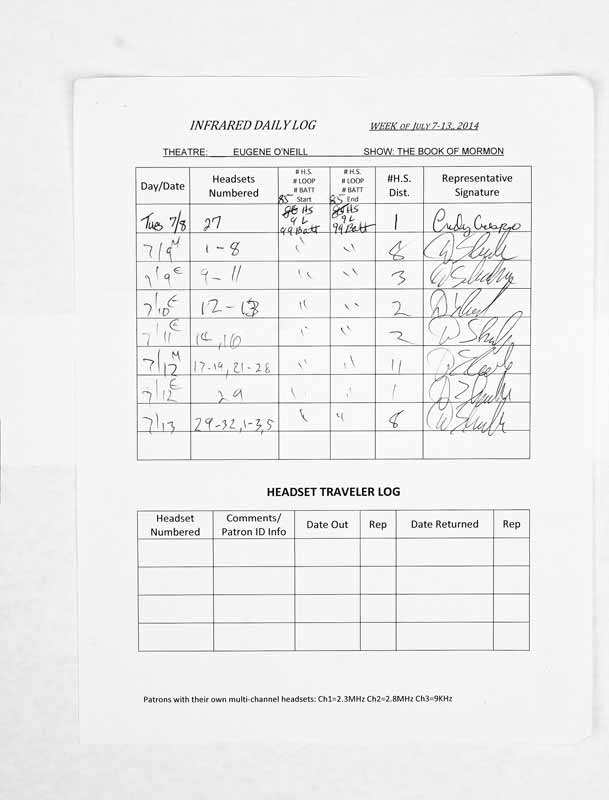 INFRARED DAILY LOG WEEK OF JULY 7-13, 2014
THEATRE: EUGENE O'NEILL SHOW: THE BOOK OF MORMON
Day/Date Headsets Numbered # H.S. # LOOP # BATT Start # H.S. # LOOP # BATT End #H.S. Dist. Representative Signature
85 85
Tues 7/8 27 HS 9 L 99 Batt HS 9 L 99 Batt 1 Cindy Crespo
7/9 M 1-8 " " 8
7/9 E 9-11 " " 3
7/10 E 12-13 " " 2
7/11 E 14,16 " " 2
7/12 M 17-19, 21-28 " " 11
7/12 E 29 " " 1
7/13 29-32, 1-3,5 " " 8
HEADSET TRAVELER LOG
Headset Numbered Comments/ Patron ID Info Date Out Rep Date Returned Rep
Patrons with their own multi-channel headsets: Ch1=2.3MHz Ch2=2.8MHz Ch3=9KHz